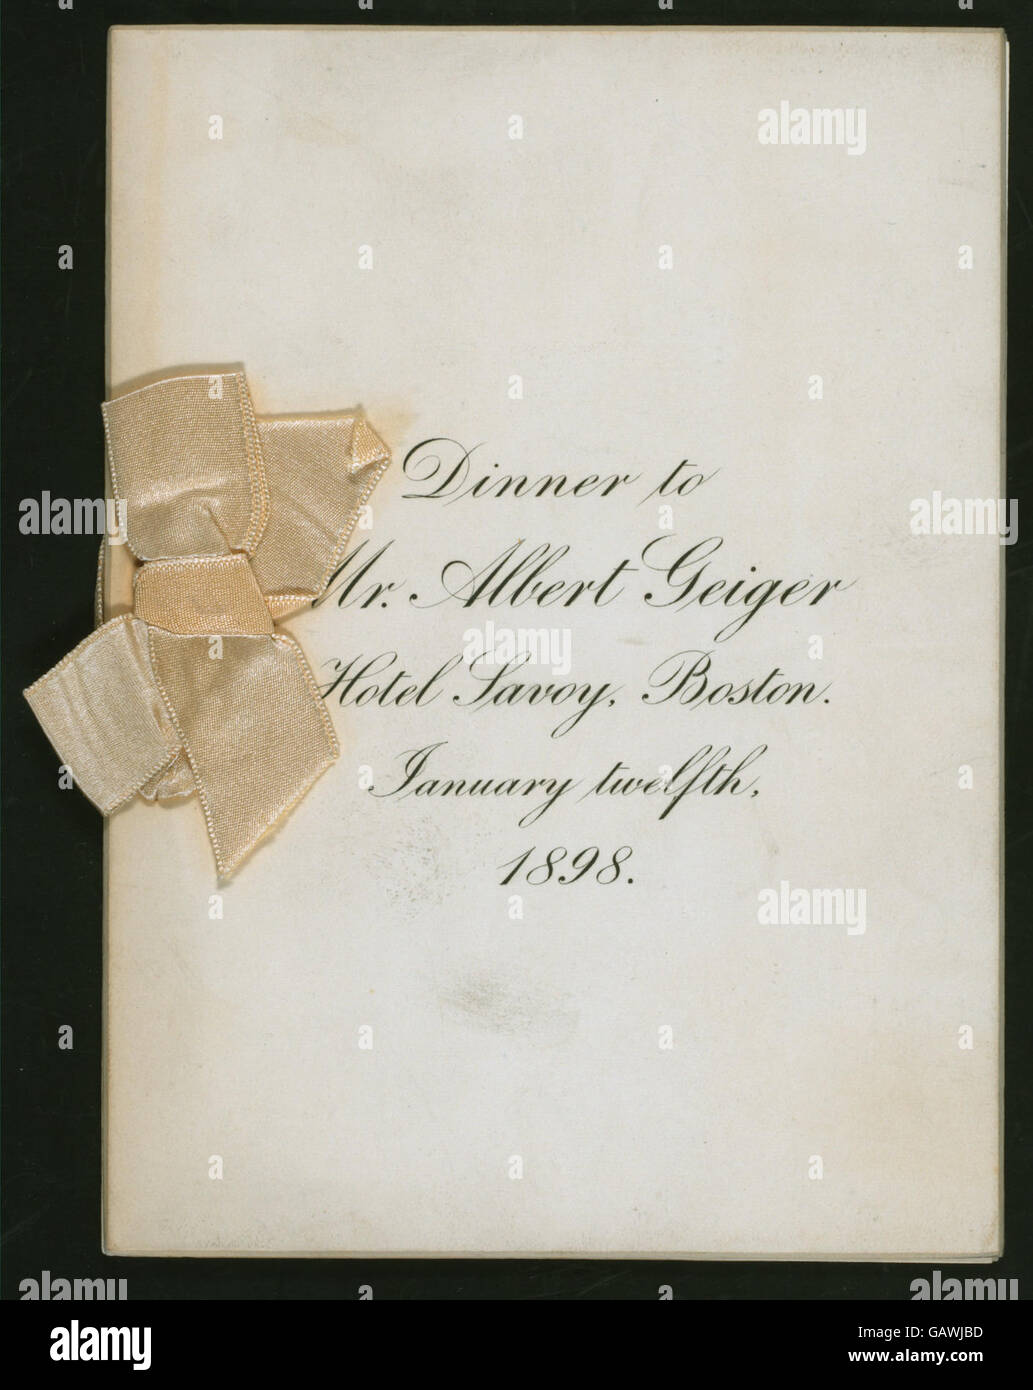 alamy
Dinner to
Mr. Albert Geiger
Hotel Savoy, Boston.
January twelfth,
1898.
alamy
alamy
Image ID: GAWJBD
www.alamy.com